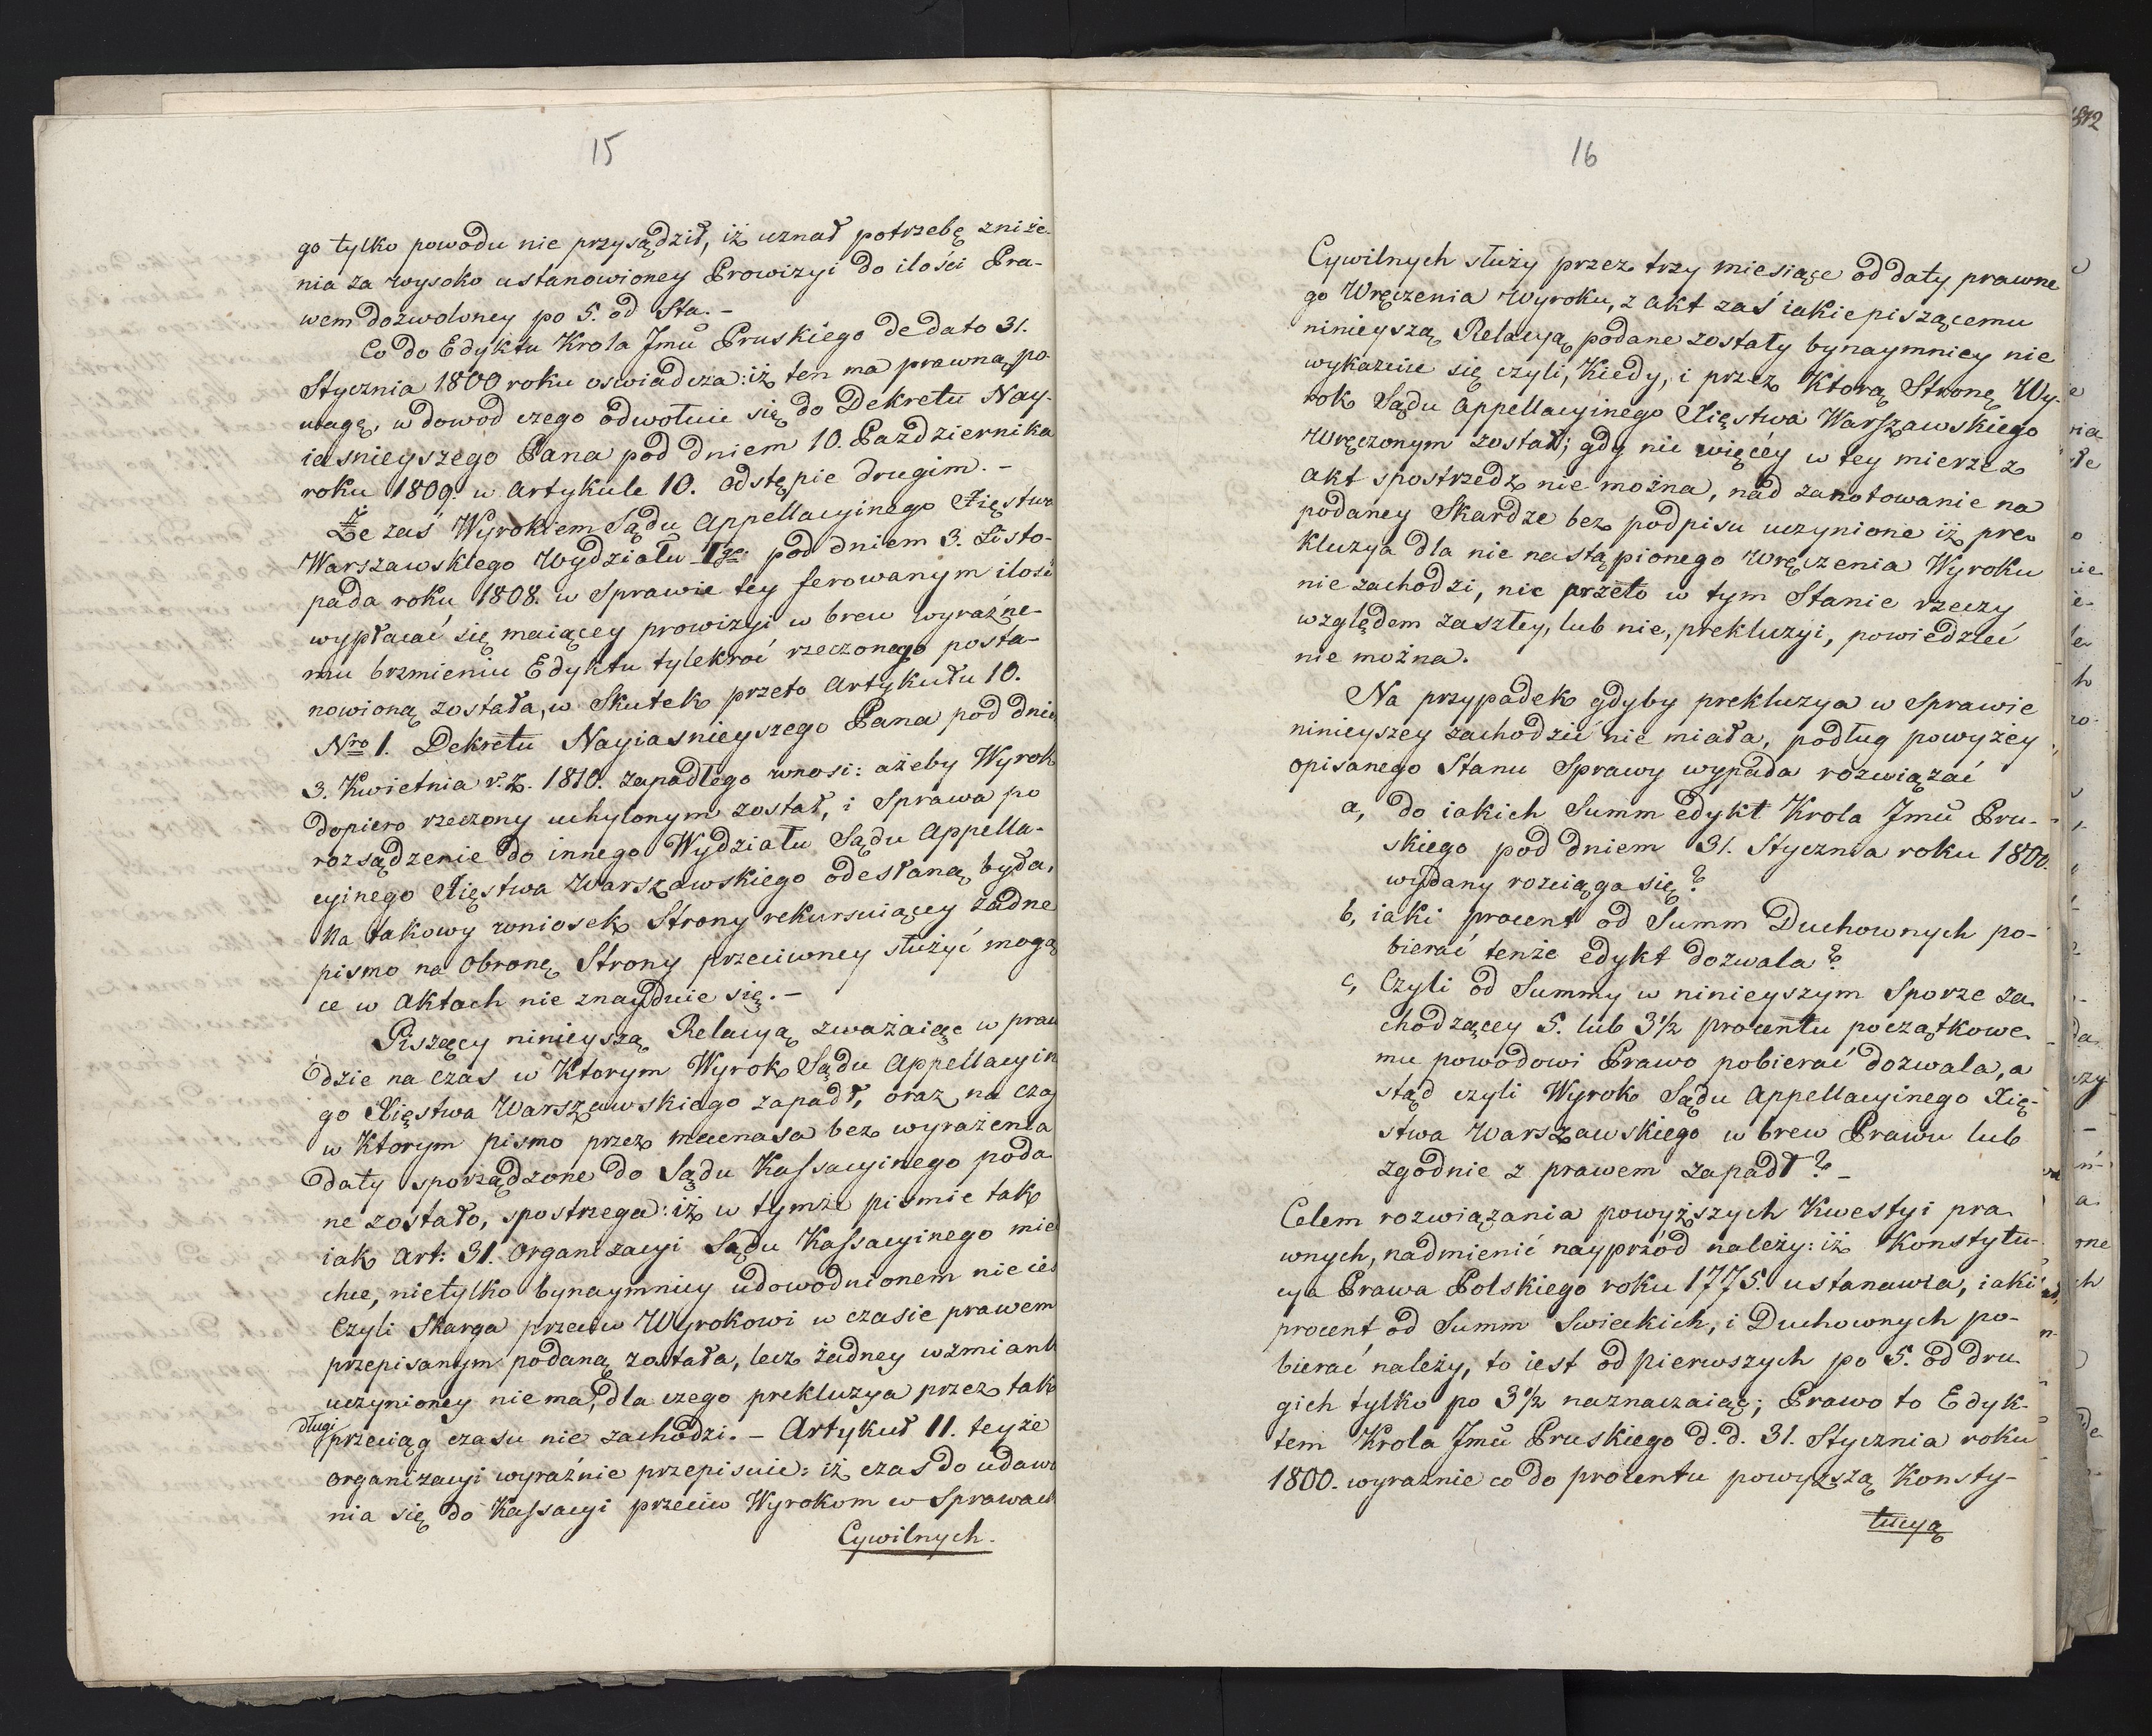 15
go tylko powodu nie przysądził, iż uznał potrzebę zniże-
nia za wysoko ustanowioney Prowizyi do ilości Pra-
wem dozwoloney po 5. od Sta. –
Co do Edyktu Krola Jmű Pruskiego de dato 31.
Stycznia 1800 roku oswiadcza: iż ten ma prawną po-
wagę, w dowod czego odwołuie się do Dekretu Nay-
iasnieyszego Pana pod dniem 10. Pazdziernika
roku 1809. w Artykule 10. odstępie drugim. –
Że zaś Wyrokiem Sądu Appellacyinego Xięstwa
Warszawskiego Wydziału Igo pod dniem 3. Listo-
pada roku 1808. w Sprawie tey ferowanym ilość
wypłacać się maiącey prowizyi w brew wyraźne-
mu brzmieniu Edyktu tylekroć rzeczonego posta-
nowioną została, w Skutek przeto Artykułu 10.
Nro 1. Dekretu Nayiasnieyszego Pana pod dniem
3. Kwietnia r. z. 1810. zapadłego wnosi: ażeby Wyrok
dopiero rzeczony uchylonym został, i Sprawa po
rozsądzenie do innego Wydziału Sądu Appella-
cyinego Xięstwa Warszawskiego odesłaną była,
Na takowy wniosek Strony rekursuiącey żadne
pismo na obronę Strony przeciwney służyć mogą
ce w Aktach nie znayduie się. –
Piszący ninieyszą Relacyą zważaiąc w praw
dzie na czas w Ktorym Wyrok Sądu Appellacyin
go Xięstwa Warszawskiego zapadł, oraz na czas
w Ktorym pismo przez mecenasa bez wyrażenia
daty sporządzone do Sądu Kassacyinego poda
ne zostało, spostrzega: iż w tymże pismie tak
iak Art: 31. Organizacyi Sądu Kassacyinego mie
chce, nietylko bynaymniey udowodnionem nie ies
Czyli Skarga przeciw Wyrokowi w czasie prawem
przepisanym podaną została, lecz żadney wzmiank
uczynioney nie ma, dla czego prekluzya przez tak
długi
przeciąg czasu nie zachodzi. – Artykuł 11. teyże
Organizacyi wyraźnie przepisuie: iż czas do udawa
nia się do Kassacyi przeciw Wyrokom w Sprawach
Cywilnych.
16
Cywilnych służy przez trzy miesiące od daty prawne
go Wręczenia Wyroku, z akt zaś iakie piszącemu
ninieyszą Relacyą podane zostały bynaymniey nie
wykazuie się czyli, Kiedy, i przez Ktorą Stronę Wy-
rok Sądu Appellacyinego Xięstwa Warszawskiego
Wręczonym został; gdy nic więcéy w tey mierze z
Akt spostrzedz nie można, nad zanotowanie na
podaney Skardze bez podpisu uczynione iż pre-
kluzya dla nie nastąpionego wręczenia Wyroku
nie zachodzi, nic przeto w tym Stanie rzeczy
względem zaszłey, lub nie, prekluzyi, powiedzieć
nie można.
Na przypadek gdyby prekluzya w Sprawie
ninieyszey zachodzić nie miała, podług powyżey
opisanego Stanu Sprawy wypada rozwiązać
a, do iakich Summ edykt Krola Jmű Pru-
skiego pod dniem 31. Stycznia roku 1800.
wydany rozciąga się?
b, iaki procent od Summ Duchownych po-
bierać tenże edykt dozwala?
c, Czyli od Summy w ninieyszym Sporze za-
chodzącey 5. lub 3½ procentu początkowe-
mu powodowi Prawo pobierać dozwala, a
stąd czyli Wyrok Sądu Appellacyinego Xię-
stwa Warszawskiego w brew Prawu lub
zgodnie z prawem zapadł? –
Celem rozwiązania powyższych Kwestyi pra-
wnych, nadmienić nayprzód należy: iż Konstytu-
cya Prawa Polskiego roku 1775. ustanawia, iaki
procent od Summ Swieckich, i Duchownych po-
bierać należy, to iest od pierwszych po 5. od dru-
gich tylko po 3½ naznaczaiąc; Prawo to Edyk-
tem Krola Jmű Pruskiego d. d. 31. Stycznia roku
1800. wyraznie co do procentu powyzszą Konsty-
tucyą